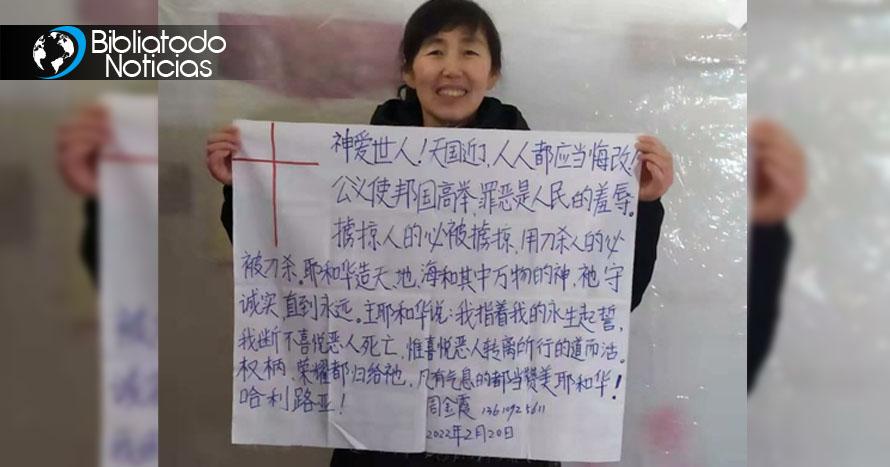 Bibliatodo
Noticias
神爱世人！天国近了，人人都应当悔改！
公义使邦国高举，罪恶是人民的羞辱。
掳掠人的必被掳掠，用刀杀人的必
被刀杀。耶和华造天、地、海和其中万物的神，祂守
诚实，直到永远。主耶和华说：我指着我的永生起誓，
我断不喜悦恶人死亡，惟喜悦恶人转离所行的道而活。
权柄、荣耀都归给祂，凡有气息的都当赞美耶和华！
哈利路亚！
周金霞 13610925611
2022年2月20日